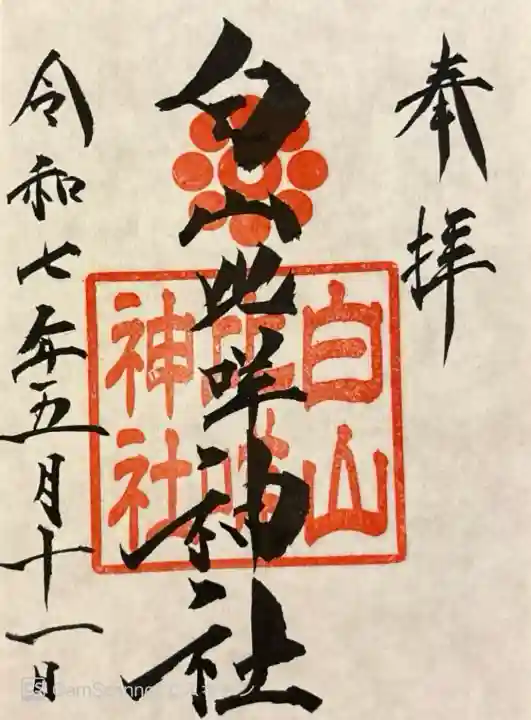 奉拝
白山比咩神社
白山
比咩
神社
令和七年五月十一日
CamScanner